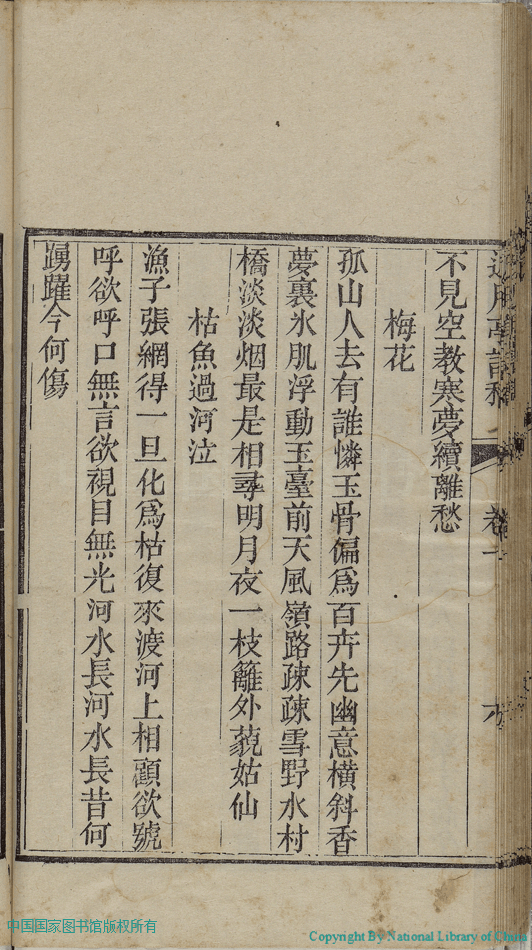 不見空教寒夢續離愁
梅花
孤山人去有誰憐玉骨偏爲百卉先幽意橫斜香
夢裏氷肌浮動玉臺前天風嶺路疎疎雪野水村
橋淡淡烟最是相尋明月夜一枝籬外藐姑仙
枯魚過河泣
漁子張網得一旦化爲枯復來渡河上相顧欲號
呼欲呼口無言欲視目無光河水長河水長昔何
踴躍今何傷
中国国家图书馆版权所有
Copyright By National Library of China